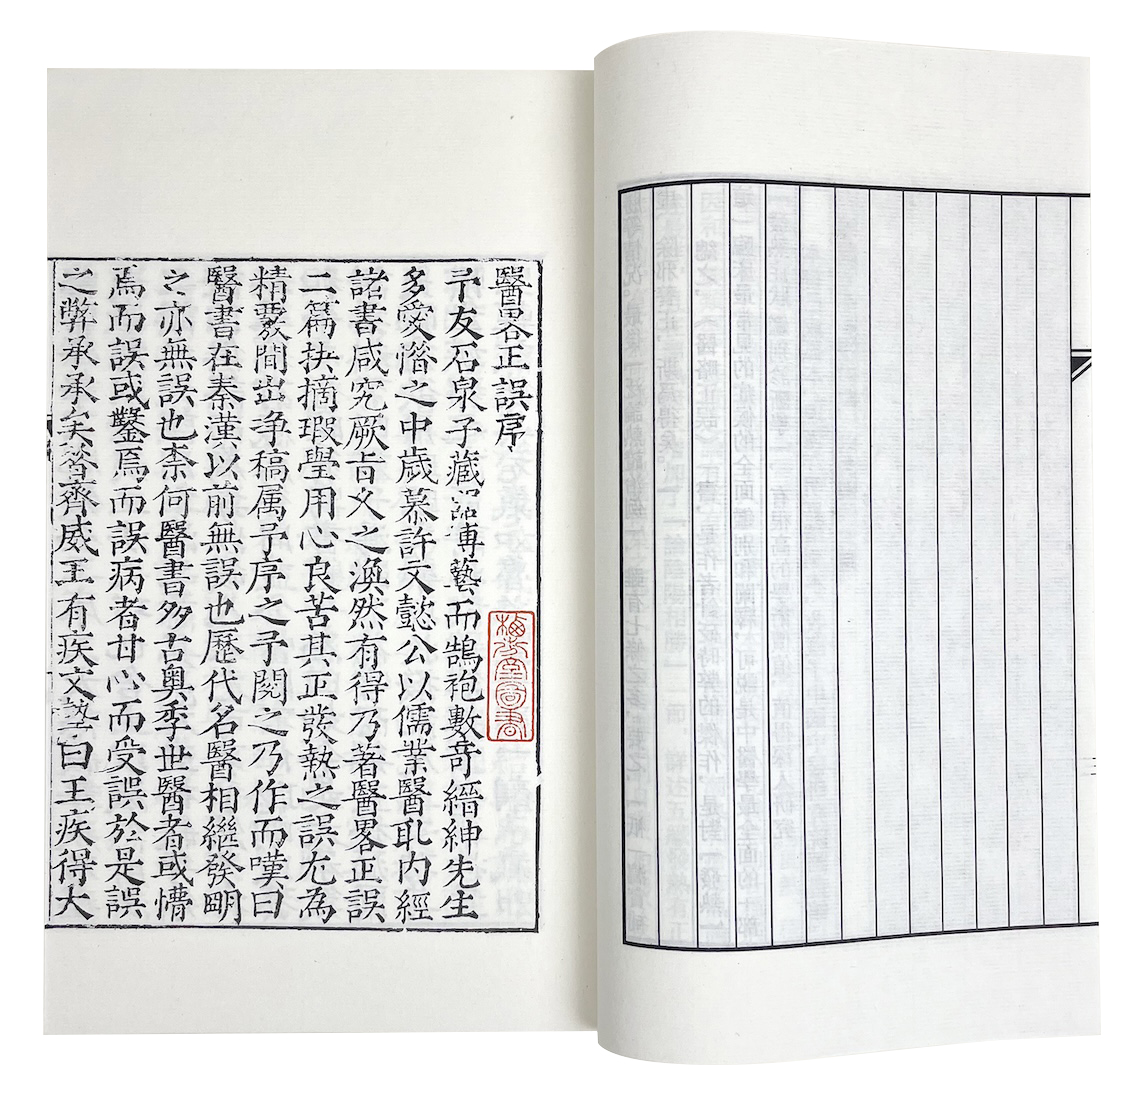 醫畧正誤序
予友石泉子藏器博藝而鵠袍數奇縉紳先生
多愛惜之中歲慕許文懿公以儒業醫耴内經
諸書咸究厥旨久之渙然有得乃著醫畧正誤
二篇抉摘瑕璺用心良苦其正發熱之誤尤為
精覈間出浄稿属予序之予閱之乃作而嘆曰
醫書在秦漢以前無誤也歷代名醫相繼發明
之亦無誤也柰何醫書多古奥季世醫者或懵
焉而誤或鑿焉而誤病者甘心而受誤於是誤
之弊承承矣昔齊威王有疾文摯曰王疾得大
梅步堂啚書